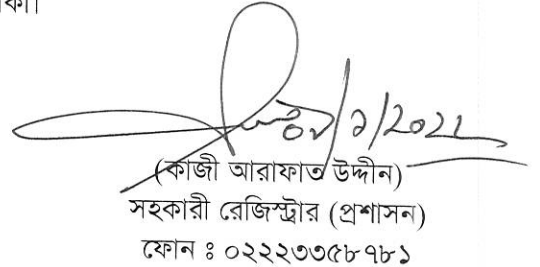 কা।
(কাজী আরাফাত উদ্দীন)
সহকারী রেজিস্ট্রার (প্রশাসন)
ফোন ঃ ০২২২৩৩৫৮৭৮১